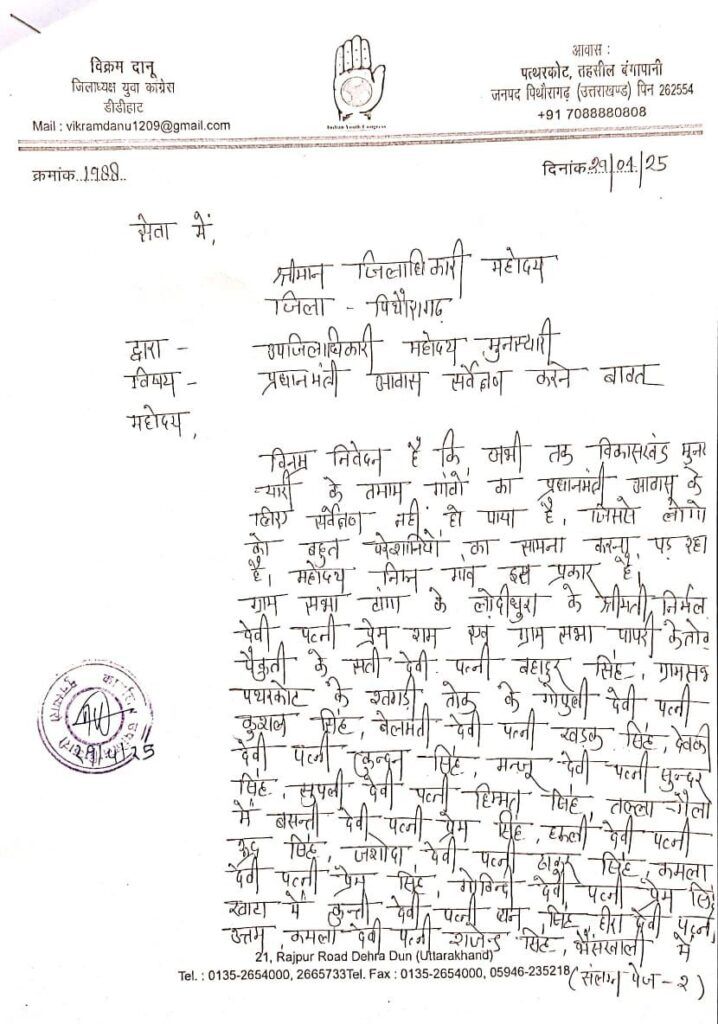 विक्रम दानू
जिलाध्यक्ष युवा कांग्रेस
डीडीहाट
Mail : vikramdanu1209@gmail.com
Indian Youth Congress
आवास :
पत्थरकोट, तहसील बंगापानी
जनपद पिथौरागढ़ (उत्तराखण्ड) पिन 262554
+91 7088880808
क्रमांक..1988..
दिनांक 29/04/25
सेवा में,
श्रीमान जिलाधिकारी महोदय
जिला - पिथौरागढ़
द्वारा - उपजिलाधिकारी महोदय मुनस्यारी
विषय - प्रधानमंत्री आवास सर्वेक्षण करने बावत
महोदय,
विनम्र निवेदन है कि अभी तक विकासखंड मुनस
्यारी के तमाम गांवों का प्रधानमंत्री आवास के
लिए सर्वेक्षण नहीं हो पाया है, जिससे लोगों
को बहुत परेशानियों का सामना करना पड़ रहा
है, महोदय निम्न गांव इस प्रकार है,
ग्राम सभा टांगा के लोदीधुरा के श्रीमती निर्मल
देवी पत्नी प्रेम राम एवं ग्राम सभा पापरी के तोक
पैकुती के सती देवी पत्नी बहादुर सिंह, ग्रामसभ
पथरकोट के तोक के गोपुली देवी पत्नी
कुशल सिंह, बेलमती देवी पत्नी खड़क सिंह, देवकी
देवी पत्नी कुन्दन सिंह, मन्जू देवी पत्नी सुन्दर
सिंह, सुपली देवी पत्नी हिम्मत सिंह, तल्ला गैला
में बसन्ती देवी पत्नी प्रेम सिंह, देवी पत्नी
रुद्र सिंह, जशोदा देवी पत्नी ठाकुर सिंह, कमला
देवी पत्नी प्रेम सिंह, गोविन्दी देवी पत्नी प्रेम सिंह
में कुन्ती देवी पत्नी सिंह, हीरा देवी पत्नी
उत्तम, कमला देवी पत्नी राजेन्द्र सिंह, भैंसखाली में
21, Rajpur Road Dehra Dun (Uttarakhand)
Tel. : 0135-2654000, 2665733Tel. Fax : 0135-2654000, 05946-235218
(संलग्न पेज - २)
29/4/25